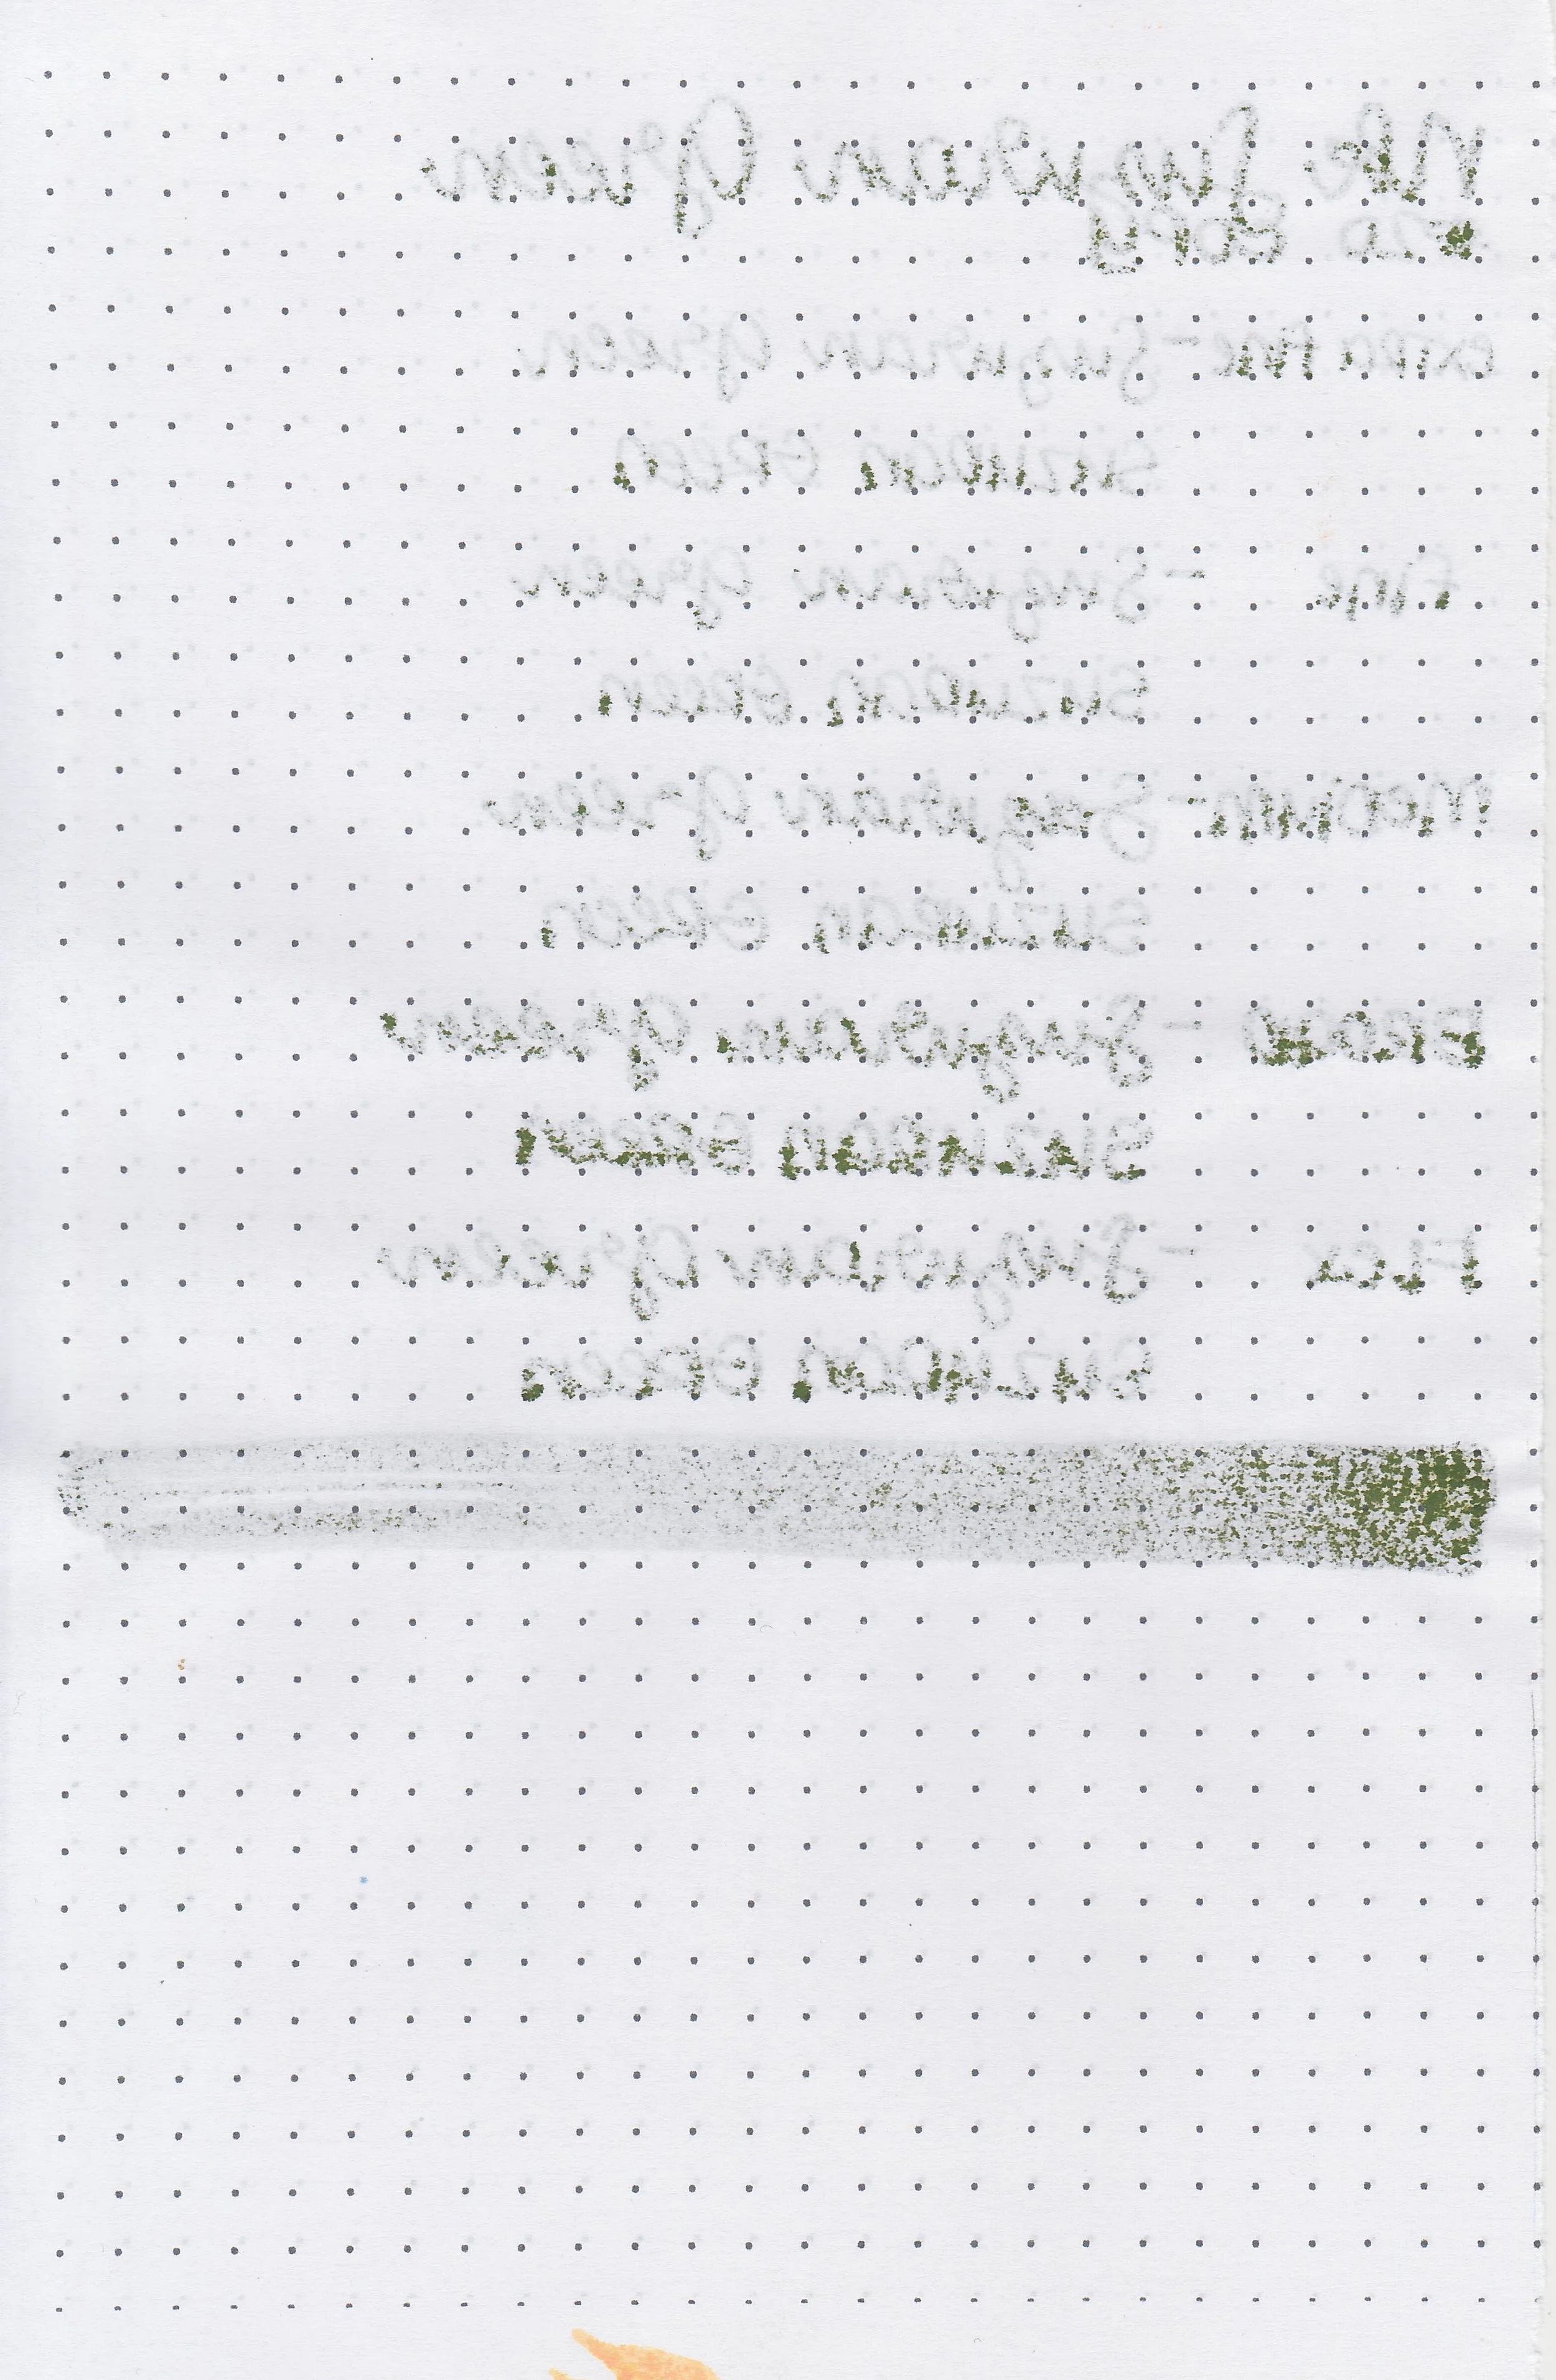 Suzuran Green
#20 COPY
Extra Fine - Suzuran Green
SUZURAN GREEN
Fine - Suzuran Green
SUZURAN GREEN
Medium - Suzuran Green
SUZURAN GREEN
BROAD - Suzuran Green
SUZURAN GREEN
FLEX - Suzuran Green
SUZURAN GREEN